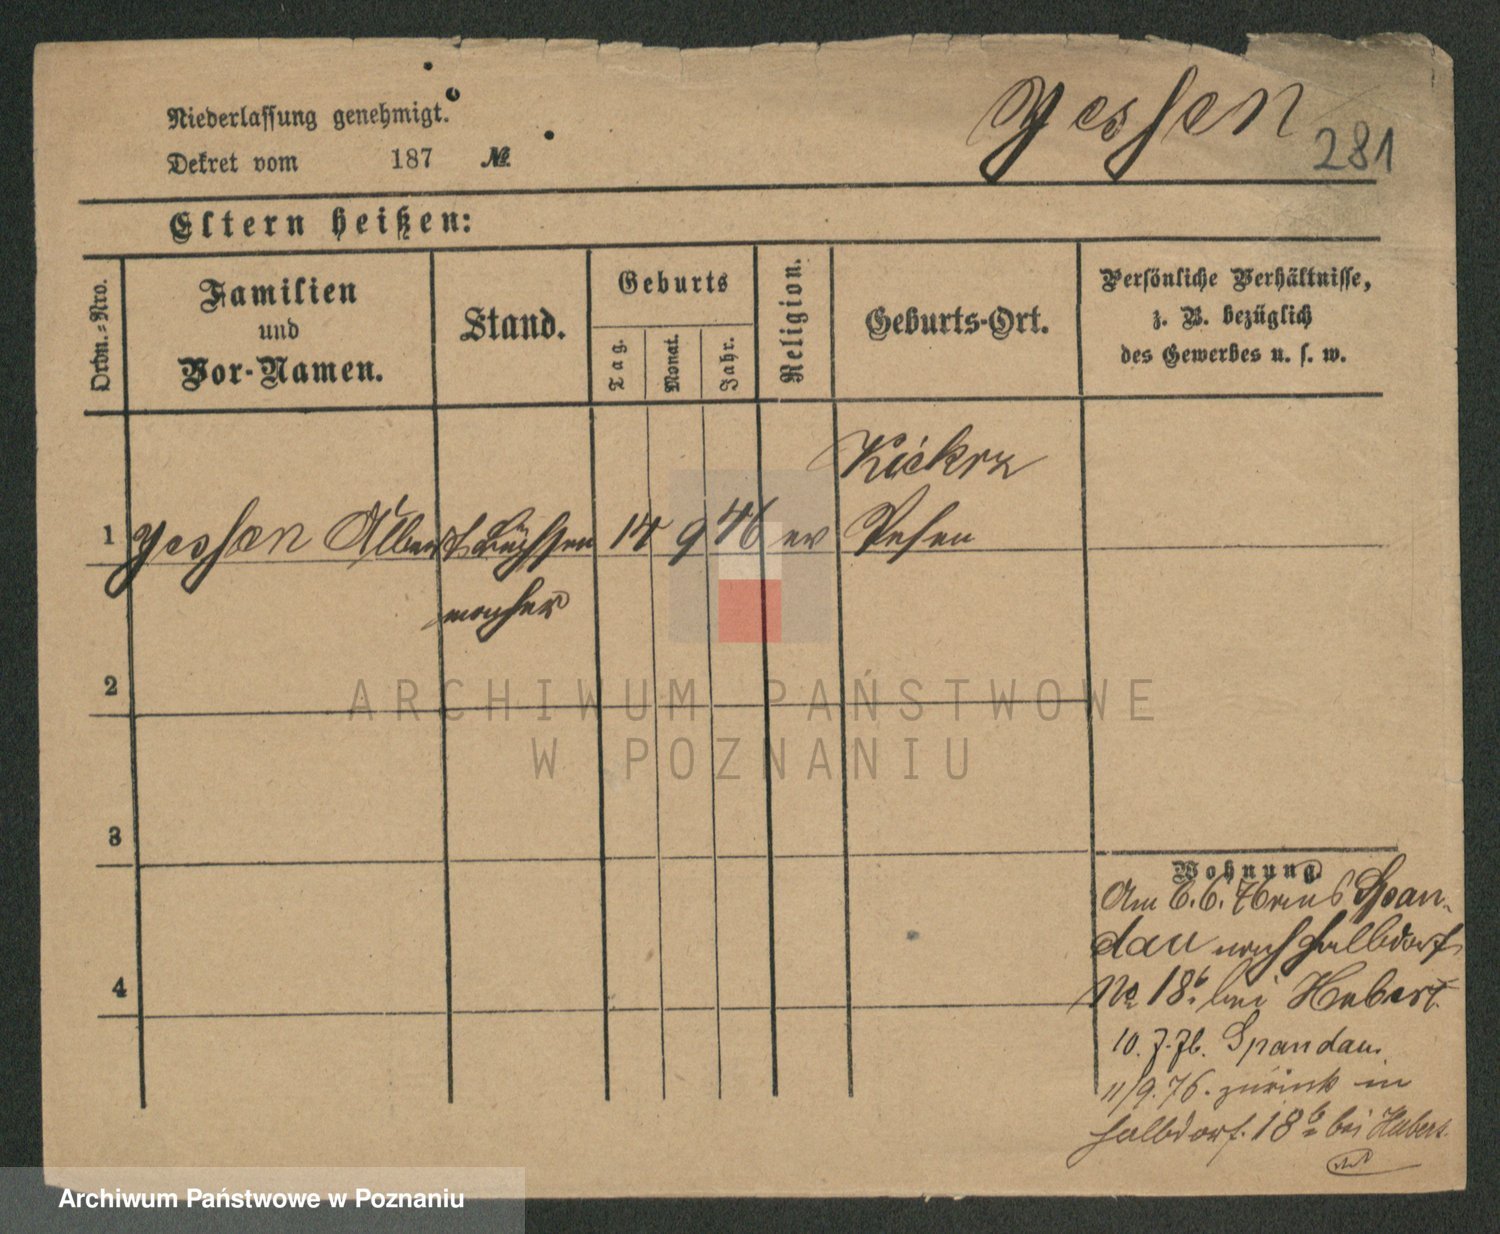 Niederlassung genehmigt.
Dekret vom 187 №.
Yessen
281
Eltern heißen:
Ordn.-Nro.
Familien
und
Vor-Namen.
Stand.
Geburts
Tag.
Monat.
Jahr.
Religion.
Geburts-Ort.
Persönliche Verhältnisse,
z. B. bezüglich
des Gewerbes u. s. w.
Kiekrz
1 Yessen Albert Büchsen 14 9 46 ev Posen
macher
2
3
4
Wohnung.
Am 6.6.76 aus Span-
dau nach Halbdorf
No 18b. bei Hubert.
10. 7. 76. Spandau.
11/9.76. zurück in
Halbdorf. 18b bei Hubert.
ARCHIWUM PAŃSTWOWE
W POZNANIU
Archiwum Państwowe w Poznaniu